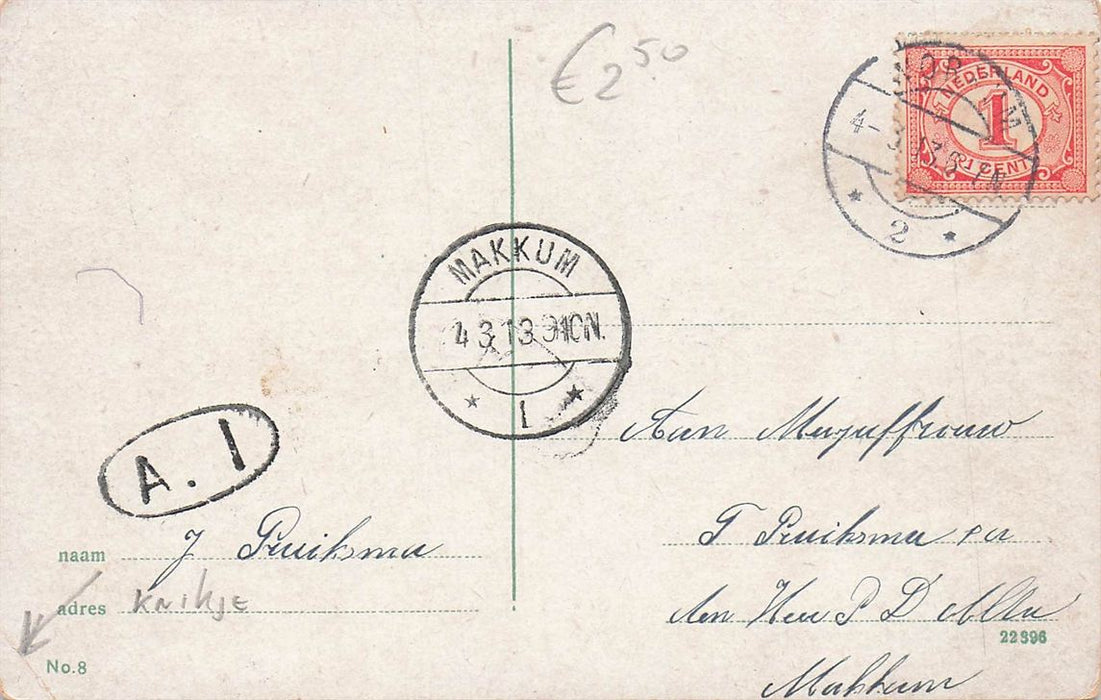 € 2 50
NEDERLAND
1
1 CENT
4-3
2
MAKKUM
4 3 13 9-10N.
1
A. I
naam J Pruiksma
adres knikje
No.8
Aan Mejuffrouw
T Pruiksma p a
den Heer P D Alta
22396
Makkum